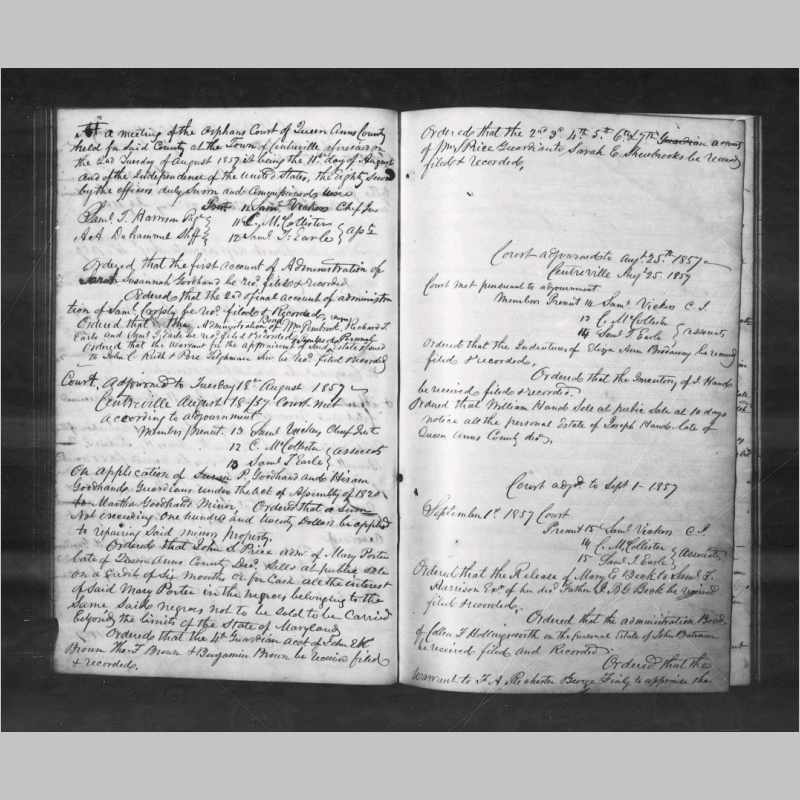 At a meeting of the Orphans Court of Queen Anns County
held for Said County at the Town of Centreville
the 2nd Tuesday of August 1857 it being the 11th day of August
and of the Independence of the United States, the Eighty Second
by the officers duly Sworn and were
12 Saml Vickers Chief Jus
Saml. T. Harrison 11 C. McCollister
A. A. Duhammel Shff 12 Saml. T. Earle
Ordered that the first account of Administration of
Sarah Susannah Goodhand be recd filed & recorded
Ordered that the 2nd & final account of administra
tion of Saml be recd filed & Recorded
Ordered that the Administration Bond of Wm Richard T.
Earle and Saml T. Earle be recd filed & Recorded
Ordered that the Warrant for the appraisment of
to John C. Ruth & be recd. filed & Recorded
Court, Adjourned to Tuesday 18th August 1857
Centreville August 18/57 Court met
according to adjournment
Members Present. 13 Saml Vickers Chief Jus
12 C. McCollister
13 Saml T Earle
On application of Susan P. Goodhand and Hiram
Goodhand Guardians under the Act of Assembly of 1820
to Martha Goodhand Minor, Ordered that a Sum
Not exceeding One hundred and twenty Dollars be applied
to repairing Said minors property.
Ordered that John S. Price of Mary Porter
late of Queen Anns County Decd. Sell at public sale
on a credit of Six months or for Cash all the interest
of Said Mary Porter in the negroes belonging to the
Same Said negroes not to be Sold to be Carried
beyond the Limits of the State of Maryland
Ordered that the 1st Guardian acct of John E K
Brown Tho. F Brown & Benjamin Brown be receivd filed
& recorded.
Ordered that the 2nd 3d 4th 5th 6th & 7th Guardian accounts
of Price Guardian to Sarah E. be recevd
filed & recorded.
Court adjourned to Augt 25th 1857
Centreville Augt 25. 1857
Court met persuant to adjournment
Members Present 14 Saml Vickers C. J.
13 C. McCollister
14 Saml T Earle
Ordered that the Indenture of Elizza Ann be received
filed & recorded.
Ordered that the Inventory of J. Hand
be received filed & recorded.
Ordered that William Hand Sell at public Sale at 10 days
notice all the personal Estate of Joseph Hand late of
Queen Anns County decd.
Court adjd. to Sept 1 1857
September 1st 1857 Court
Present 15 Saml Vickers C. J.
14 C. McCollister
15 Saml T Earle
Ordered that the Release of Mary E Beck to Saml T.
Harrison Exr of her decd Father Beck be received
filed & recorded.
Ordered that the administration Bond
of Hollingsworth on the personal Estate of John Bateman
be received filed and Recorded.
Ordered that the
Warrant to T. A. Rochester George to appraise the